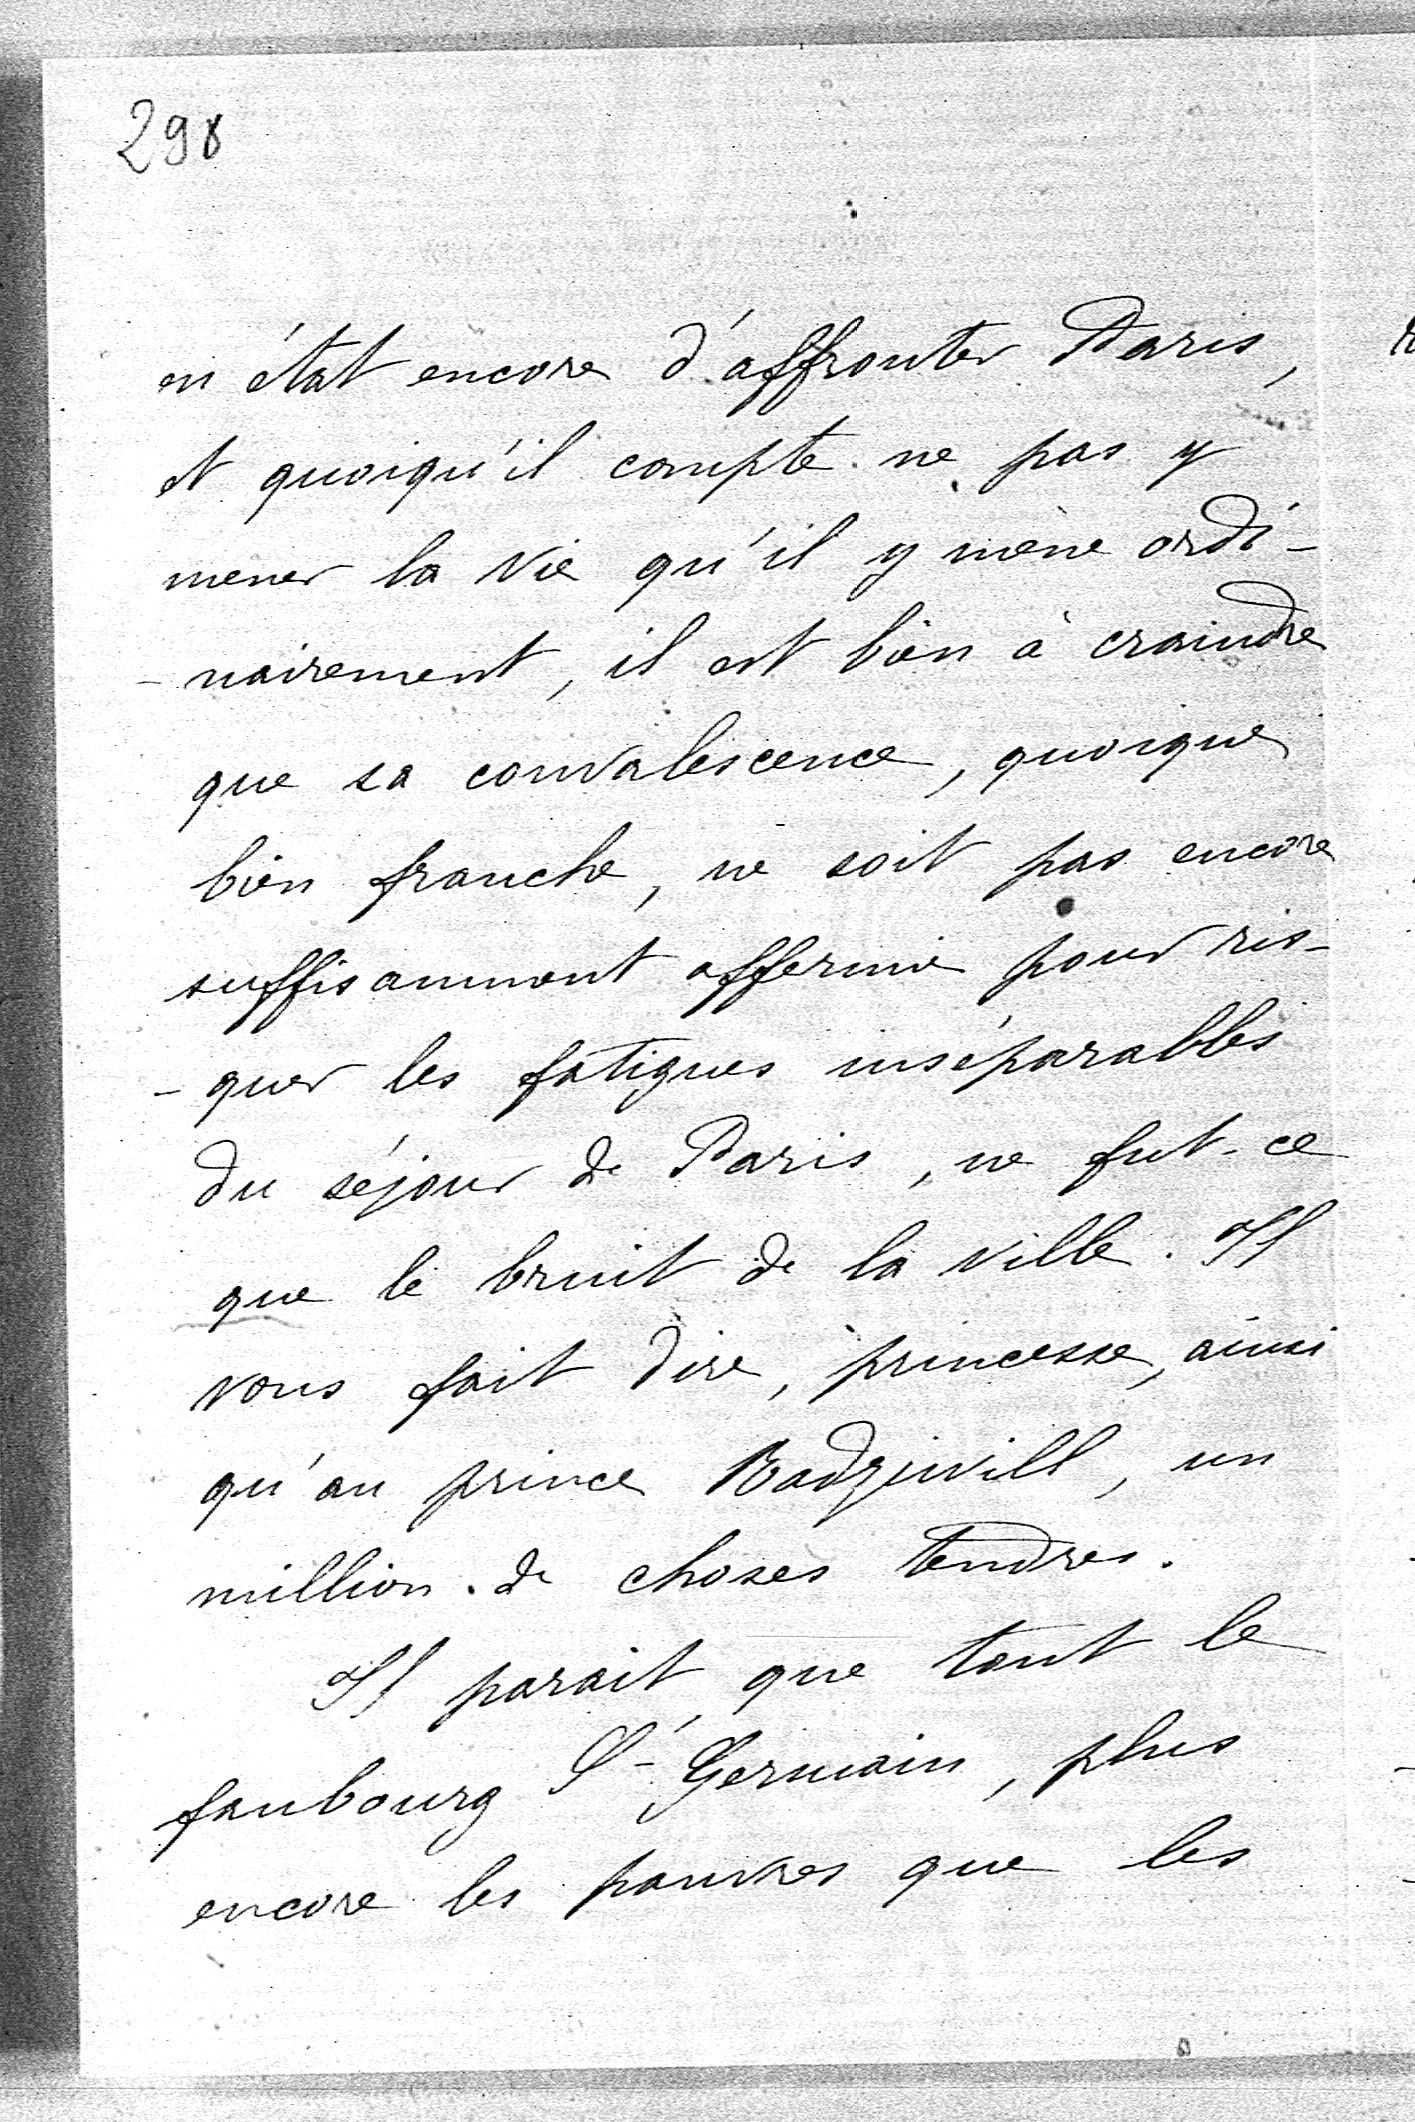 298
en état encore d'affronter Paris,
et quoiqu'il compte ne pas y
mener la vie qu'il y mène ordi-
-nairement, il est bien à craindre
que sa convalescence, quoique
bien franche, ne soit pas encore
suffisamment affermie pour ris-
-quer les fatigues inséparables
du séjour de Paris, ne fut-ce
que le bruit de la ville. Il
vous fait dire, princesse, ainsi
qu'au prince Radziwill, un
million de choses tendres.
Il parait que tout le
faubourg St-Germain, plus
encore les pauvres que les